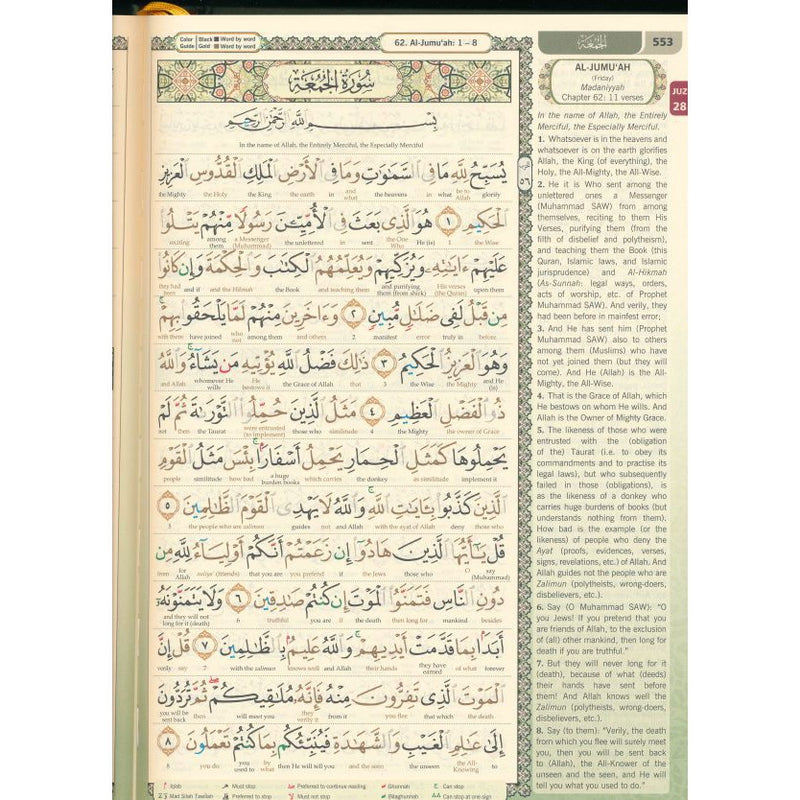 Color Guide | Black ■ Word by word | Gold ■ Word by word
62. Al-Jumu'ah: 1 – 8
الجمعة
553
سُورَةُ الجُمُعَةِ
بِسْمِ اللَّهِ الرَّحْمَٰنِ الرَّحِيمِ
In the name of Allah, the Entirely Merciful, the Especially Merciful
يُسَبِّحُ لِلَّهِ مَا فِي السَّمَٰوَٰتِ وَمَا فِي الْأَرْضِ الْمَلِكِ الْقُدُّوسِ الْعَزِيزِ
the Mighty the Holy the King the earth in and what the heavens in what be to Allah glorify
الْحَكِيمِ ١ هُوَ الَّذِي بَعَثَ فِي الْأُمِّيِّـۧنَ رَسُولًا مِّنْهُمْ يَتْلُوا۟
reciting among them a Messenger (Muhammad) the unlettered in sent the One Who He (is) 1 the Wise
عَلَيْهِمْ ءَايَٰتِهِۦ وَيُزَكِّيهِمْ وَيُعَلِّمُهُمُ الْكِتَٰبَ وَالْحِكْمَةَ وَإِن كَانُوا۟
they had been and if and the Hikmah the Book and teaching them and purifying them (from shirk) His verses (the Quran) upon them
مِن قَبْلُ لَفِي ضَلَٰلٍ مُّبِينٍ ٢ وَءَاخَرِينَ مِنْهُمْ لَمَّا يَلْحَقُوا۟ بِهِمْ
with them have joined not who among them and others 2 manifest error truly in before
وَهُوَ الْعَزِيزُ الْحَكِيمُ ٣ ذَٰلِكَ فَضْلُ اللَّهِ يُؤْتِيهِ مَن يَشَآءُ وَاللَّهُ
and Allah whomever He wills He bestows it the Grace of Allah that 3 the Wise the Mighty and He (is)
ذُو الْفَضْلِ الْعَظِيمِ ٤ مَثَلُ الَّذِينَ حُمِّلُوا۟ التَّوْرَىٰةَ ثُمَّ لَمْ
not then the Taurat were entrusted (to implement) those who similitude 4 the Mighty the owner of Grace
يَحْمِلُوهَا كَمَثَلِ الْحِمَارِ يَحْمِلُ أَسْفَارًۢا بِئْسَ مَثَلُ الْقَوْمِ
people similitude how bad a huge burden books which carries the donkey as similitude implement it
الَّذِينَ كَذَّبُوا۟ بِـَٔايَٰتِ اللَّهِ وَاللَّهُ لَا يَهْدِي الْقَوْمَ الظَّٰلِمِينَ ٥
5 the people who are zalimun guides not and Allah with the ayat of Allah deny those who
قُلْ يَٰٓأَيُّهَا الَّذِينَ هَادُوٓا۟ إِن زَعَمْتُمْ أَنَّكُمْ أَوْلِيَآءُ لِلَّهِ مِن
from for Allah awliya' (friends) that you are you pretend if the Jews those who O say (Muhammad)
دُونِ النَّاسِ فَتَمَنَّوُا۟ الْمَوْتَ إِن كُنتُمْ صَٰدِقِينَ ٦ وَلَا يَتَمَنَّوْنَهُۥٓ
and they will not long for it (death) 6 truthful you are if the death then long for mankind besides
أَبَدًۢا بِمَا قَدَّمَتْ أَيْدِيهِمْ وَاللَّهُ عَلِيمٌۢ بِالظَّٰلِمِينَ ٧ قُلْ إِنَّ
verily say 7 with the zalimun knows well and Allah their hands they have earned of what forever
الْمَوْتَ الَّذِي تَفِرُّونَ مِنْهُ فَإِنَّهُۥ مُلَٰقِيكُمْ ثُمَّ تُرَدُّونَ
you will be sent back then will meet you they verily it from it you flee that which the death
إِلَىٰ عَٰلِمِ الْغَيْبِ وَالشَّهَٰدَةِ فَيُنَبِّئُكُم بِمَا كُنتُمْ تَعْمَلُونَ ٨
8 you do you used to by what then He will tell you and the seen the unseen the All-Knowing to
Iqlab Must stop Preferred to continue reading Ghunnah Can stop
Mad Silah Tawilah Preferred to stop Must not stop Bilaghunnah Can stop at one sign
AL-JUMU'AH
(Friday)
Madaniyyah
Chapter 62: 11 verses
JUZ
28
In the name of Allah, the Entirely
Merciful, the Especially Merciful.
1. Whatsoever is in the heavens and
whatsoever is on the earth glorifies
Allah, the King (of everything), the
Holy, the All-Mighty, the All-Wise.
2. He it is Who sent among the
unlettered ones a Messenger
(Muhammad SAW) from among
themselves, reciting to them His
Verses, purifying them (from the
filth of disbelief and polytheism),
and teaching them the Book (this
Quran, Islamic laws, and Islamic
jurisprudence) and Al-Hikmah
(As-Sunnah: legal ways, orders,
acts of worship, etc. of Prophet
Muhammad SAW). And verily, they
had been before in mainfest error;
3. And He has sent him (Prophet
Muhammad SAW) also to others
among them (Muslims) who have
not yet joined them (but they will
come). And He (Allah) is the All-
Mighty, the All-Wise.
4. That is the Grace of Allah, which
He bestows on whom He wills. And
Allah is the Owner of Mighty Grace.
5. The likeness of those who were
entrusted with the (obligation
of the) Taurat (i.e. to obey its
commandments and to practise its
legal laws), but who subsequently
failed in those (obligations), is
as the likeness of a donkey who
carries huge burdens of books (but
understands nothing from them).
How bad is the example (or the
likeness) of people who deny the
Ayat (proofs, evidences, verses,
signs, revelations, etc.) of Allah. And
Allah guides not the people who are
Zalimun (polytheists, wrong-doers,
disbelievers, etc.).
6. Say (O Muhammad SAW): "O
you Jews! If you pretend that you
are friends of Allah, to the exclusion
of (all) other mankind, then long for
death if you are truthful."
7. But they will never long for it
(death), because of what (deeds)
their hands have sent before
them! And Allah knows well the
Zalimun (polytheists, wrong-doers,
disbelievers, etc.).
8. Say (to them): "Verily, the death
from which you flee will surely meet
you, then you will be sent back
to (Allah), the All-Knower of the
unseen and the seen, and He will
tell you what you used to do."